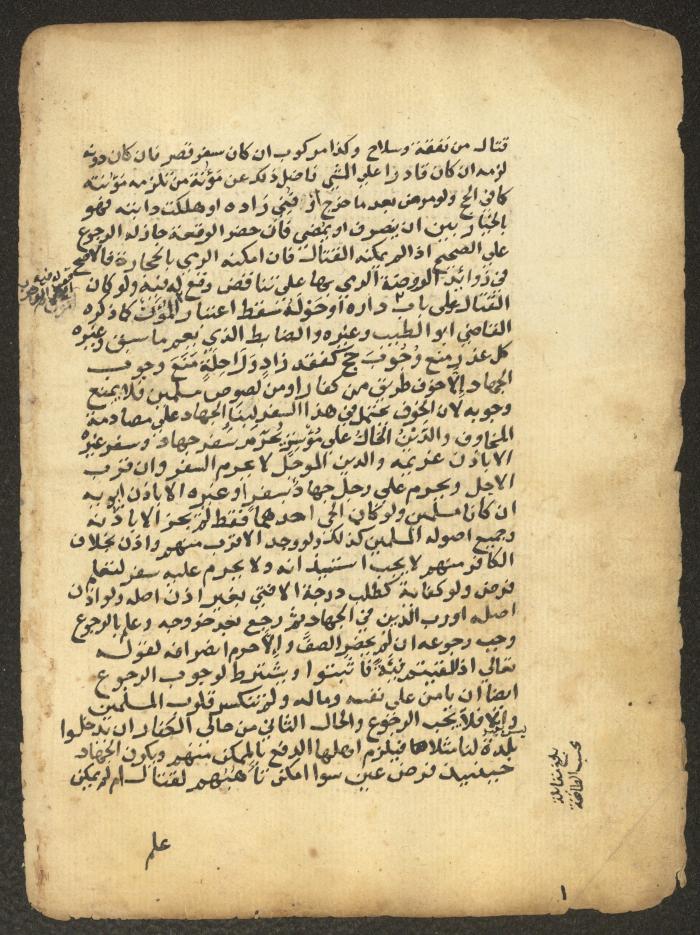 قتاله من نفقة وسلاح وكذا مركوب ان كان سفر قصر فان كان دونه
لزمه ان كان قادرا على المشي فاضل ذلك عن مؤنة من تلزمه مؤنته
كما في الحج ولو مرض بعد ما خرج او فني زاده او هلكت دابته فهو
بالخيار بين ان ينصرف او يمضي فان حضر الوقعة جاز له الرجوع
على الصحيح اذا لم يمكنه القتال فان امكنه الرمي بالحجارة فالاصح
في زوائد الروضة الرمي بها على تناقض وقع له فيه ولو كان
القتال على باب داره او حوله سقط اعتبار المؤن كما ذكره
القاضي ابو الطيب وغيره والضابط الذي يعم ما سبق وغيره
كل عذر منع وجوب حج كفقد زاد وراحلة منع وجوب
الجهاد الا خوف طريق من كفار او من لصوص مسلمين فلا يمنع
وجوبه لان الخوف يحتمل في هذا السفر لبنا الجهاد على مصادمة
المخاوف والدين الحال على مؤسر يحرم سفر جهاد وسفر غيره
الا باذن غريمه والدين المؤجل لا يحرم السفر وان قرب
الاجل ويحرم على رجل جهاد بسفر او غيره الا باذن ابويه
ان كانا مسلمين ولو كان الحي احدهما فقط لم يجز الا باذنه
وجميع اصوله المسلمين كذلك ولو وجد الاقرب منهم واذن بخلاف
الكافر منهم لا يجب استئذانه ولا يحرم عليه سفر لتعلم
فرض ولو كفاية كطلب درجة الافتي بغير اذن اصله ولو اذن
اصله او رب الدين في الجهاد ثم رجع بعد خروجه وعلم بالرجوع
وجب رجوعه ان لم يحضر الصف والا حرم انصرافه لقوله
تعالى اذا لقيتم فئة فاثبتوا ويشترط لوجوب الرجوع
ايضا ان يامن على نفسه وماله ولم تنكسر قلوب المسلمين
والا فلا يجب الرجوع والحال الثاني من حالي الكفار ان يدخلوا
بلدة لنا مثلا فيلزم اهلها الدفع بالممكن منهم ويكون الجهاد
حينئذ فرض عين سوا امكن تاهبهم لقتال ام لم يمكن
علم
بلغ مقابلة
بحسب الطاقة
١